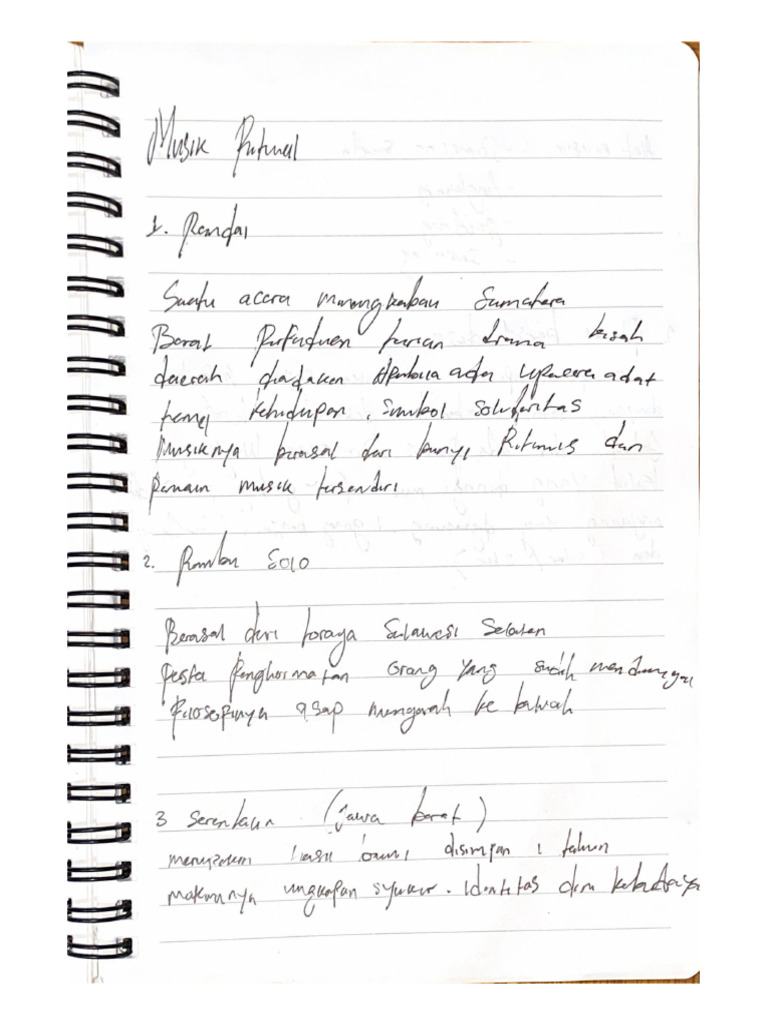 Musik Ritual
1. Randai
Suatu acara minangkabau Sumatera
Barat Perpaduan tarian drama kisah
daerah diadakan Apabila ada upacara adat
kehidupan. Simbol Solidaritas
Musiknya berasal dari bunyi Ritmis dan
pemain musik tersendiri
2. Rambu Solo
Berasal dari toraja Sulawesi Selatan
Pesta Penghormatan orang yang sudah meninggal
Filosofinya asap mengarah ke bawah
3 Serentaun (jawa barat)
hasil bumi disimpan 1 tahun
maknanya ungkapan syukur. Identitas dan